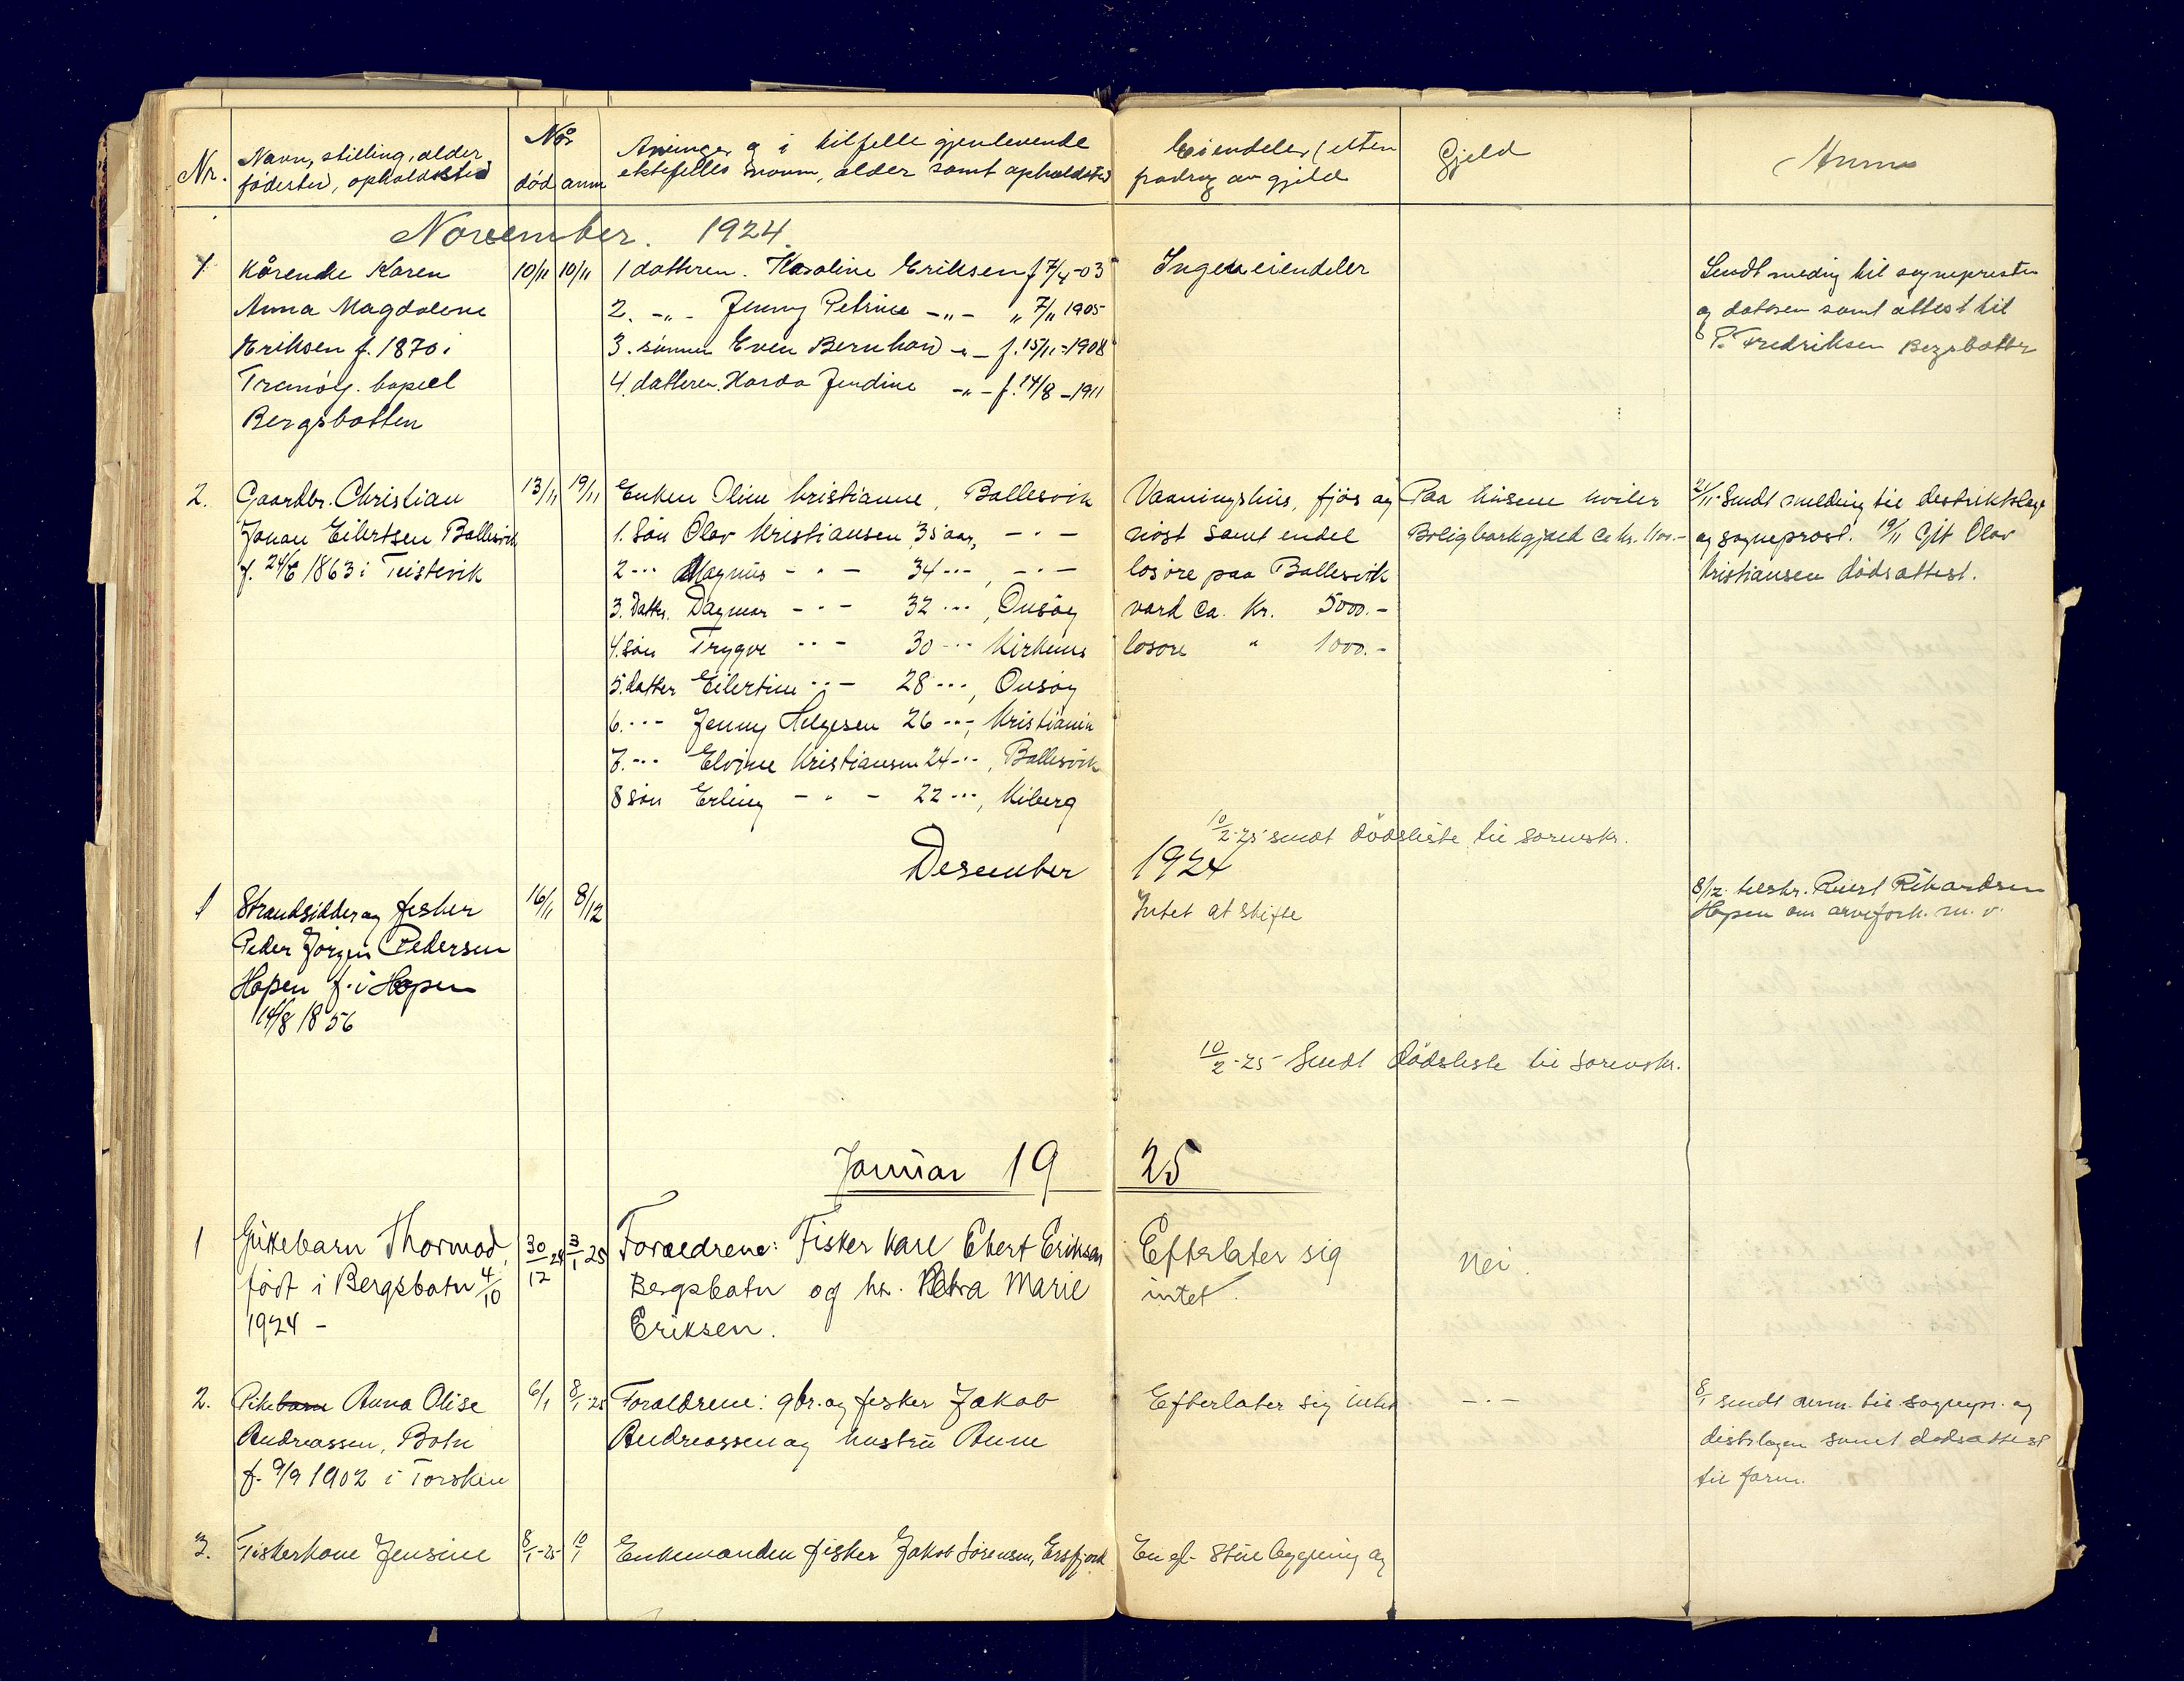 Nr.
Navn, stilling, alder
fødested, opholdssted
Når
død anm
Arvinger og i tilfelle gjenlevende
ektefelles navn, alder samt opholdsted
Eiendeler (etter
fradrag av gjeld
Gjeld
Anm
November. 1924.
1 Kårende Karen
Anna Magdalene
Eriksen f. 1870 i
Tranøy. bopæl
Bergsbotten
10/11 10/11
1 datteren. Karoline Eriksen f 7/4-03
2. -„- Jenny Petrine -„- „ 7/11 1905
3. sønnen Even Bernhard -„- f. 15/11-1908
4. datteren. Harda Jendine -„- f. 14/8-1911
Ingen eiendeler
Sendt meding til sognepresten
og datoen samt attest til
P. Fredriksen Bergsbotten
2. Gaardbr. Christian
Johan Eilertsen Ballesvik
f. 24/6 1863 i Teistevik
13/11 19/11
Enken Oline Kristianne, Ballesvik
1. Søn Olav Kristiansen, 35 aar, - " -
2 --- Magnus - " - 34 ---, - " -
3. Datter. Dagmar - " - 32 ---, Onsöy
4. søn Trygve - " - 30 --- Kirkenes
5. datter Eilertine - " - 28 ---, Onsøy
6. --- Jenny Helgesen 26 ---, Kristiania
7. --- Elvine Kristiansen 24 ---, Ballesvik
8 søn Erling - " - 22 ---, Kiberg
Vaaningshus, fjøs og
nöst samt endel
løsøre paa Ballesvik
værd ca. Kr. 5000.-
løsøre " 1000.-
Paa husene hviler
Boligbankgjæld ca kr. 1100.-
21/11 Sendt melding til destriktslege
og sogneprost. 19/11 Git Olav
Kristiansen dödsattest.
10/2-25 sendt dödsliste til sorenskr.
Desember 1924
1 Strandsidder og fisker
Peder Jörgen Pedersen
Hopen f. i Hopen
14/8 1856
16/11 8/12
Intet at skifte
8/12 tilskr. Rikardsen
Hopen om arveforh. m. v.
10/2-25 Sendt dödsliste til sorenskr.
Januar 1925
1 Gutebarn Thormod,
født i Bergsbotn 4/10
1924 -
30/12 24 3/1 25
Foraeldrene: Fisker Karl Ebert Eriksen
Bergsbotn og hr. Petra Marie
Eriksen.
Efterlater sig
intet.
Nei.
2. Pikebarn Anna Olise
Andreassen, Botn
f. 9/9 1902 i Torsken
6/1 8/1-25
Foraeldrene: gbr. og fisker Jakob
Andreassen og hustru Anne
Efterlater sig intet
- " -
8/1 sendt anm. til sognepr. og
distrlægen samt dødsattest
til farm.
3. Fiskerkone Jensine
8/1-25 10/1
Enkemanden fisker Jakob Sörensen, Ersfjord
En gl. Stuebygning og